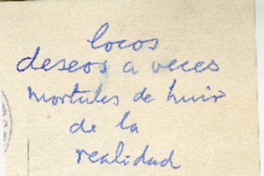 locos
deseos a veces
mortales de huir
de la
realidad